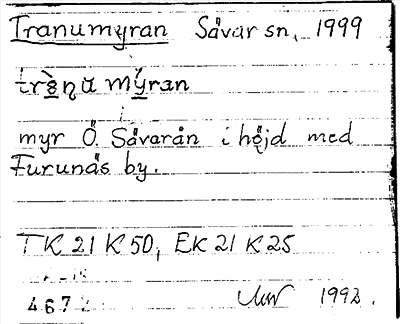 Tranumyran Sävar sn, 1999
myr Ö. Sävarån i höjd med
Furunäs by.
TK 21 K 50, EK 21 K 25
467
1992.